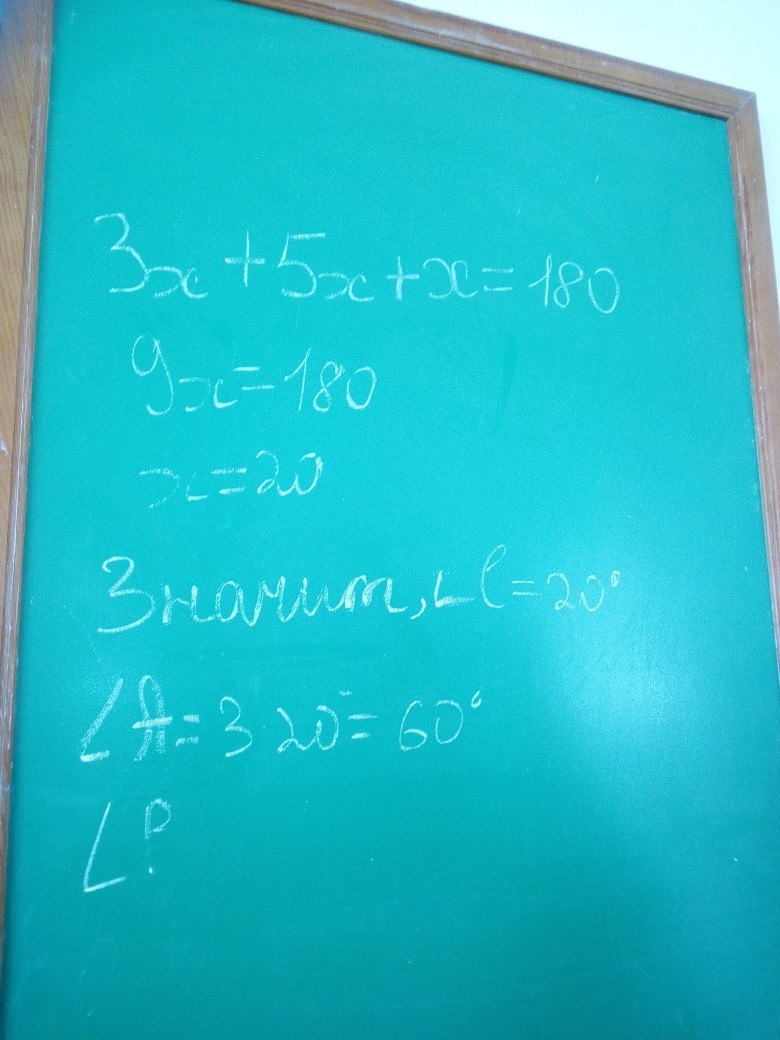 3x+5x+x=180
9x=180
x=20
Значит, ∠C=20°
∠A=3·20°=60°
∠P